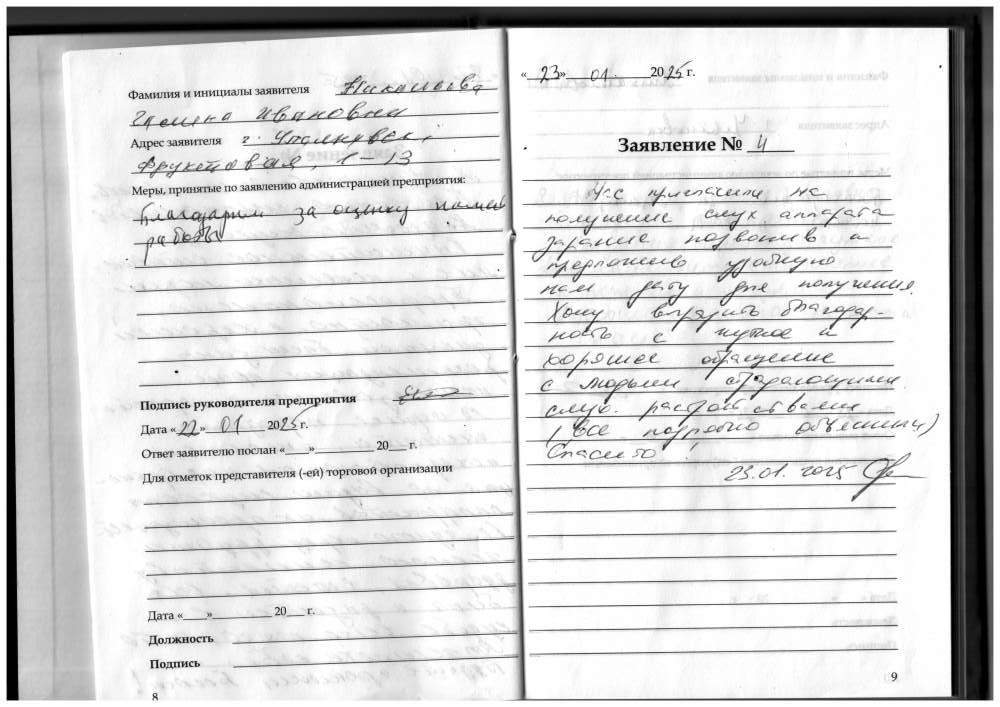 Фамилия и инициалы заявителя
Ивановна
Адрес заявителя г.
Фруктовая, 1-13
Меры, принятые по заявлению администрацией предприятия:
Благодарим за оценку нашей
работы
Подпись руководителя предприятия
Дата «22» 01 2025 г.
Ответ заявителю послан «___»__________ 20___ г.
Для отметок представителя (-ей) торговой организации
Дата «___»__________ 20___ г.
Должность
Подпись
8
«23» 01 2025 г.
Заявление № 4
Нас пригласили на
получение слух. аппарата
заранее позвонив и
предложив удобную
нам дату для получения.
Хочу выразить благодар-
ность с чуткое и
хорошее обращение
с людьми страдающими
слух. расстройствами
(все подробно объяснили)
Спасибо!
23.01.2025
9